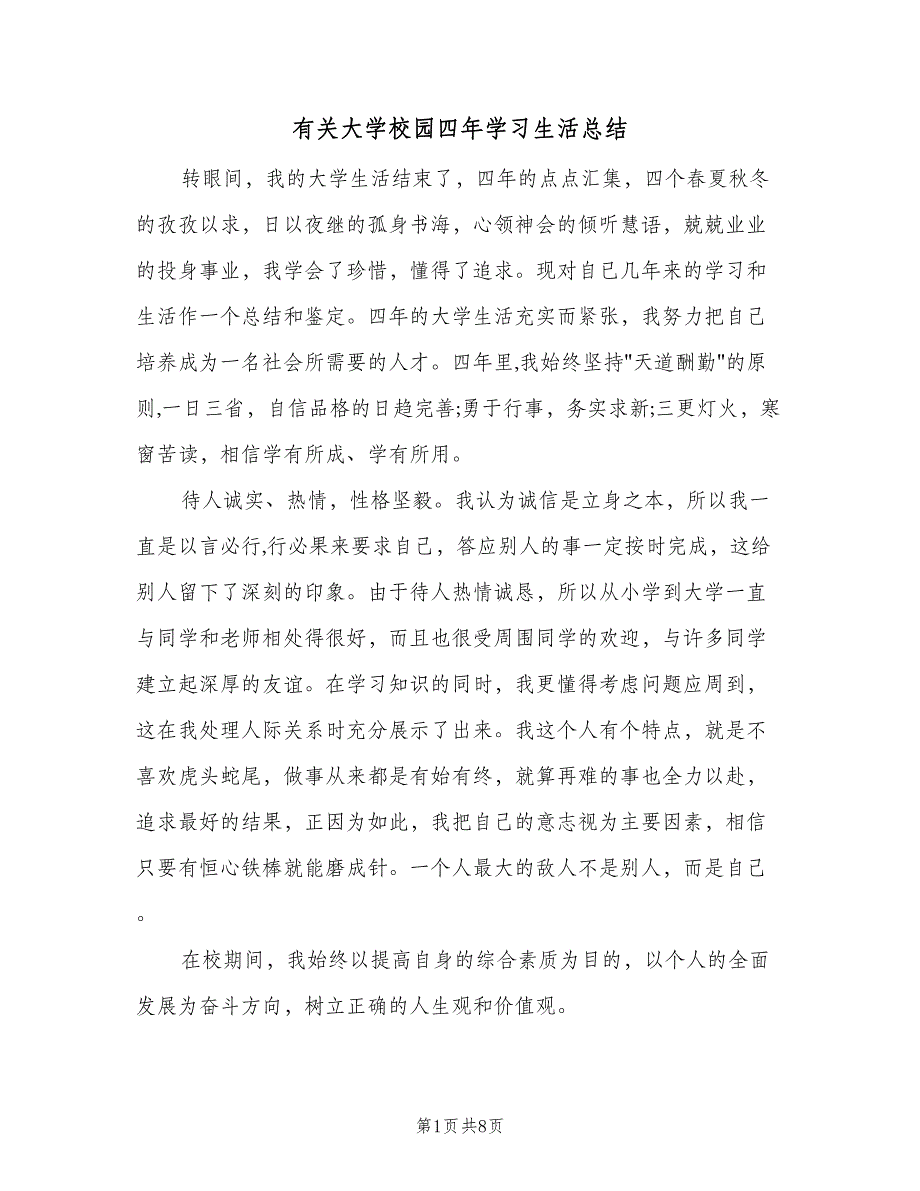 有关大学校园四年学习生活总结
转眼间，我的大学生活结束了，四年的点点汇集，四个春夏秋冬
的孜孜以求，日以夜继的孤身书海，心领神会的倾听慧语，兢兢业业
的投身事业，我学会了珍惜，懂得了追求。现对自已几年来的学习和
生活作一个总结和鉴定。四年的大学生活充实而紧张，我努力把自己
培养成为一名社会所需要的人才。四年里,我始终坚持"天道酬勤"的原
则,一日三省，自信品格的日趋完善;勇于行事，务实求新;三更灯火，寒
窗苦读，相信学有所成、学有所用。
待人诚实、热情，性格坚毅。我认为诚信是立身之本，所以我一
直是以言必行,行必果来要求自己，答应别人的事一定按时完成，这给
别人留下了深刻的印象。由于待人热情诚恳，所以从小学到大学一直
与同学和老师相处得很好，而且也很受周围同学的欢迎，与许多同学
建立起深厚的友谊。在学习知识的同时，我更懂得考虑问题应周到，
这在我处理人际关系时充分展示了出来。我这个人有个特点，就是不
喜欢虎头蛇尾，做事从来都是有始有终，就算再难的事也全力以赴，
追求最好的结果，正因为如此，我把自己的意志视为主要因素，相信
只要有恒心铁棒就能磨成针。一个人最大的敌人不是别人，而是自己
。
在校期间，我始终以提高自身的综合素质为目的，以个人的全面
发展为奋斗方向，树立正确的人生观和价值观。
第1页 共8页